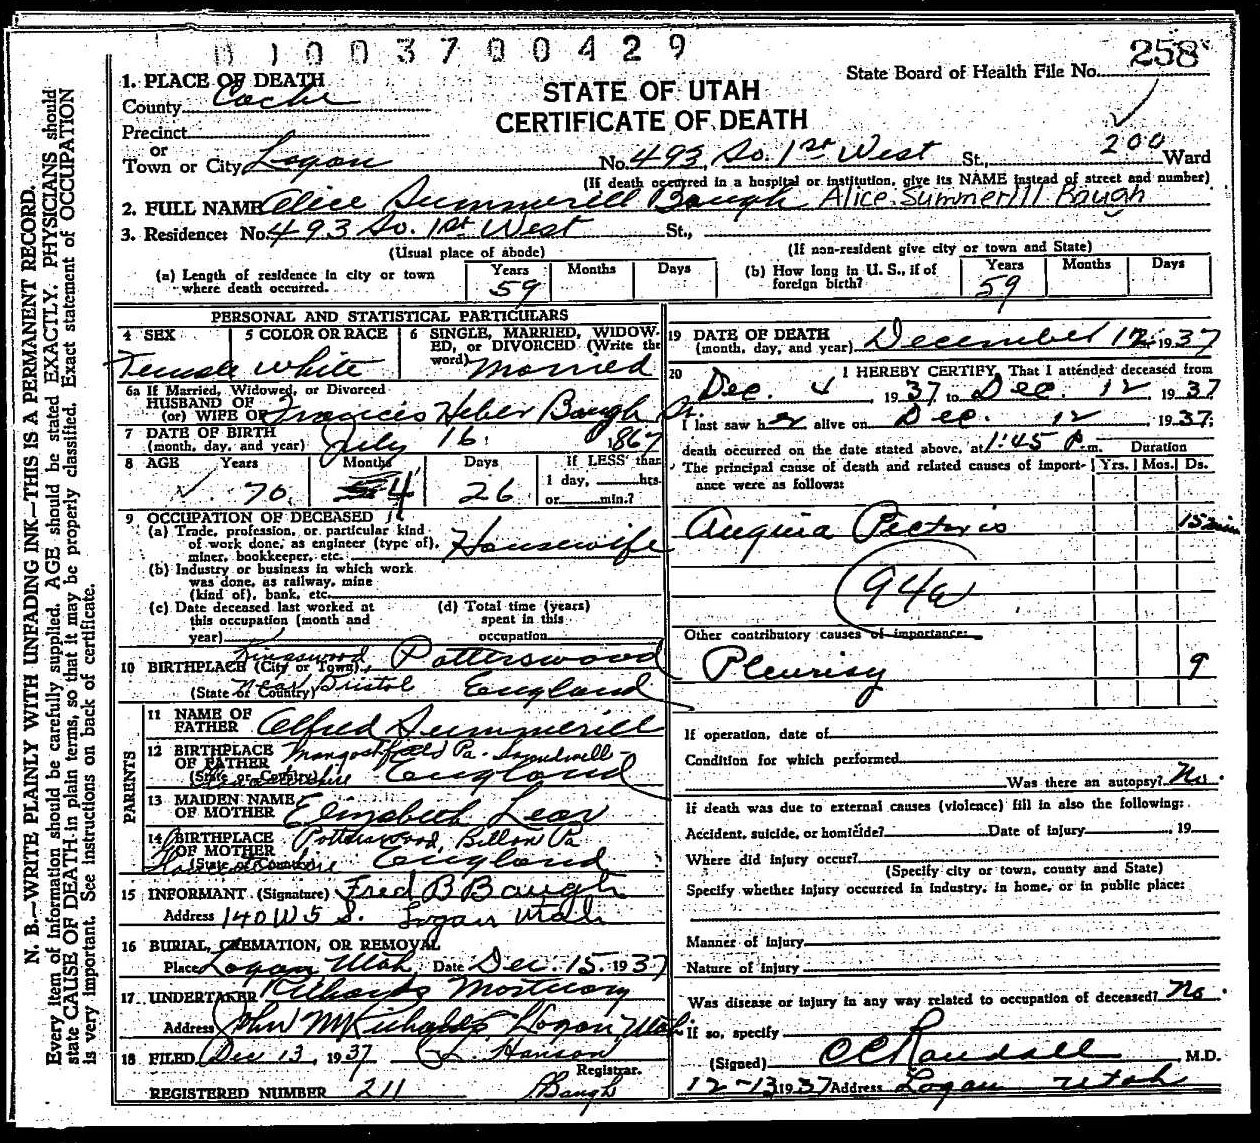 0 1 0 0 3 7 0 0 4 2 9
State Board of Health File No. 258
STATE OF UTAH
CERTIFICATE OF DEATH
1. PLACE OF DEATH
County Cache
Precinct
or
Town or City Logan No. 493 So. 1st West St., 200 Ward
(If death occurred in a hospital or institution, give its NAME instead of street and number)
2. FULL NAME Alice Summerill Baugh Alice Summerill Baugh
3. Residence: No. 493 So. 1st West St.,
(Usual place of abode) (If non-resident give city or town and State)
(a) Length of residence in city or town where death occurred. Years 59 Months Days
(b) How long in U. S., if of foreign birth? Years 59 Months Days
PERSONAL AND STATISTICAL PARTICULARS
4 SEX Female
5 COLOR OR RACE White
6 SINGLE, MARRIED, WIDOWED, or DIVORCED (Write the word) Married
6a If Married, Widowed, or Divorced
HUSBAND OF
(or) WIFE OF Francis Heber Baugh Sr.
7 DATE OF BIRTH
(month, day, and year) July 16 1867
8 AGE Years 70 Months 4 Days 26
If LESS than
1 day, hrs.
or min.?
9 OCCUPATION OF DECEASED
(a) Trade, profession, or particular kind
of work done, as engineer (type of),
miner, bookkeeper, etc. Housewife
(b) Industry or business in which work
was done, as railway, mine
(kind of), bank, etc.
(c) Date deceased last worked at
this occupation (month and
year)
(d) Total time (years)
spent in this
occupation
10 BIRTHPLACE (City or Town) Kingswood Potterswood
(State or Country) near Bristol England
PARENTS
11 NAME OF
FATHER Alfred Summerill
12 BIRTHPLACE
OF FATHER
(State or Country) England
13 MAIDEN NAME
OF MOTHER Elizabeth Lear
14 BIRTHPLACE
OF MOTHER Potterswood, Pa
(State or Country) England
15 INFORMANT (Signature) Fred B Baugh
Address 140 W 5 S. Logan Utah
16 BURIAL, CREMATION, OR REMOVAL
Place Logan Utah Date Dec. 15. 1937
17 UNDERTAKER Richards Mortuary
Address John M Richards, Logan, Utah
18 FILED Dec 13, 1937 Hanson
Registrar.
REGISTERED NUMBER 211 Baugh
19 DATE OF DEATH
(month, day, and year) December 12 1937
20 I HEREBY CERTIFY, That I attended deceased from
Dec. 4, 1937 to Dec. 12, 1937
I last saw her alive on Dec. 12, 1937;
death occurred on the date stated above, at 1:45 P. m.
The principal cause of death and related causes of importance were as follows:
Duration
Yrs. Mos. Ds.
Angina Pectoris 15 min
94a
Other contributory causes of importance:
Pleurisy 9
If operation, date of
Condition for which performed
Was there an autopsy? No.
If death was due to external causes (violence) fill in also the following:
Accident, suicide, or homicide? Date of injury , 19
Where did injury occur?
(Specify city or town, county and State)
Specify whether injury occurred in industry, in home, or in public place:
Manner of injury
Nature of injury
Was disease or injury in any way related to occupation of deceased? No.
If so, specify
(Signed) O C Randall, M.D.
12-13 1937 Address Logan Utah
N. B.—WRITE PLAINLY WITH UNFADING INK—THIS IS A PERMANENT RECORD.
Every item of information should be carefully supplied. AGE should be stated EXACTLY. PHYSICIANS should
state CAUSE OF DEATH in plain terms, so that it may be properly classified. Exact statement of OCCUPATION
is very important. See instructions on back of certificate.